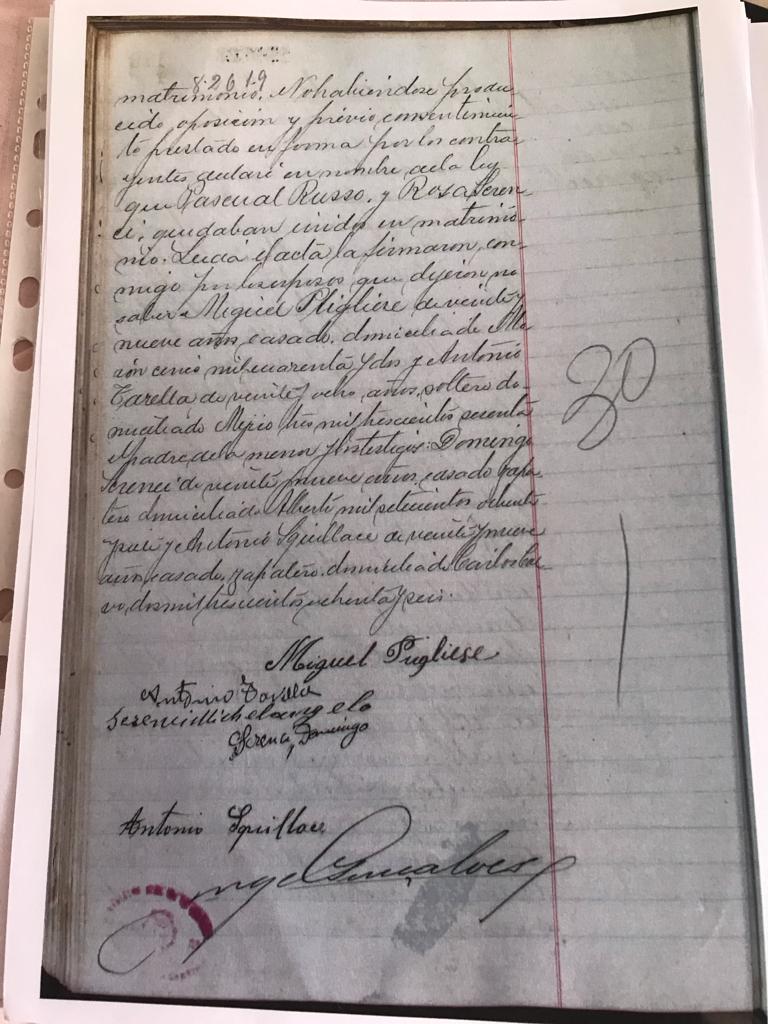 8·26 19
matrimonio. No habiéndose produ-
cido, oposicion y prévio consentimien-
to prestado en forma por los contra-
yentes declaré en nombre de la ley
que Pascual Russo, y Rosa Seren-
ci, quedaban unidos en matrimo-
nio. Leida el acta la firmaron, con-
migo por los esposos que dijeron no
saber Miguel Pligliese de veinte y
nueve años, casado, domiciliado
cinco mil cuarenta y dos y Antonio
Tarella de veinte y ocho años, soltero do-
miciliado Mejico tres mil trescientos sesenta
el padre de la menor y los testigos: Domingo
Serenci de veinte y nueve años, casado zapa-
tero domiciliado Alberti mil setecientos ochenta
y siete y Antonio Squillace de veinte y nueve
años, casado, zapatero. domiciliado Carlos Cal-
vo, dos mil trescientos ochenta y seis.
30
Miguel Pugliese
Antonio Tarella
Serenci Michelangelo
Serenci, Domingo
Antonio Squillace
Gonçalves